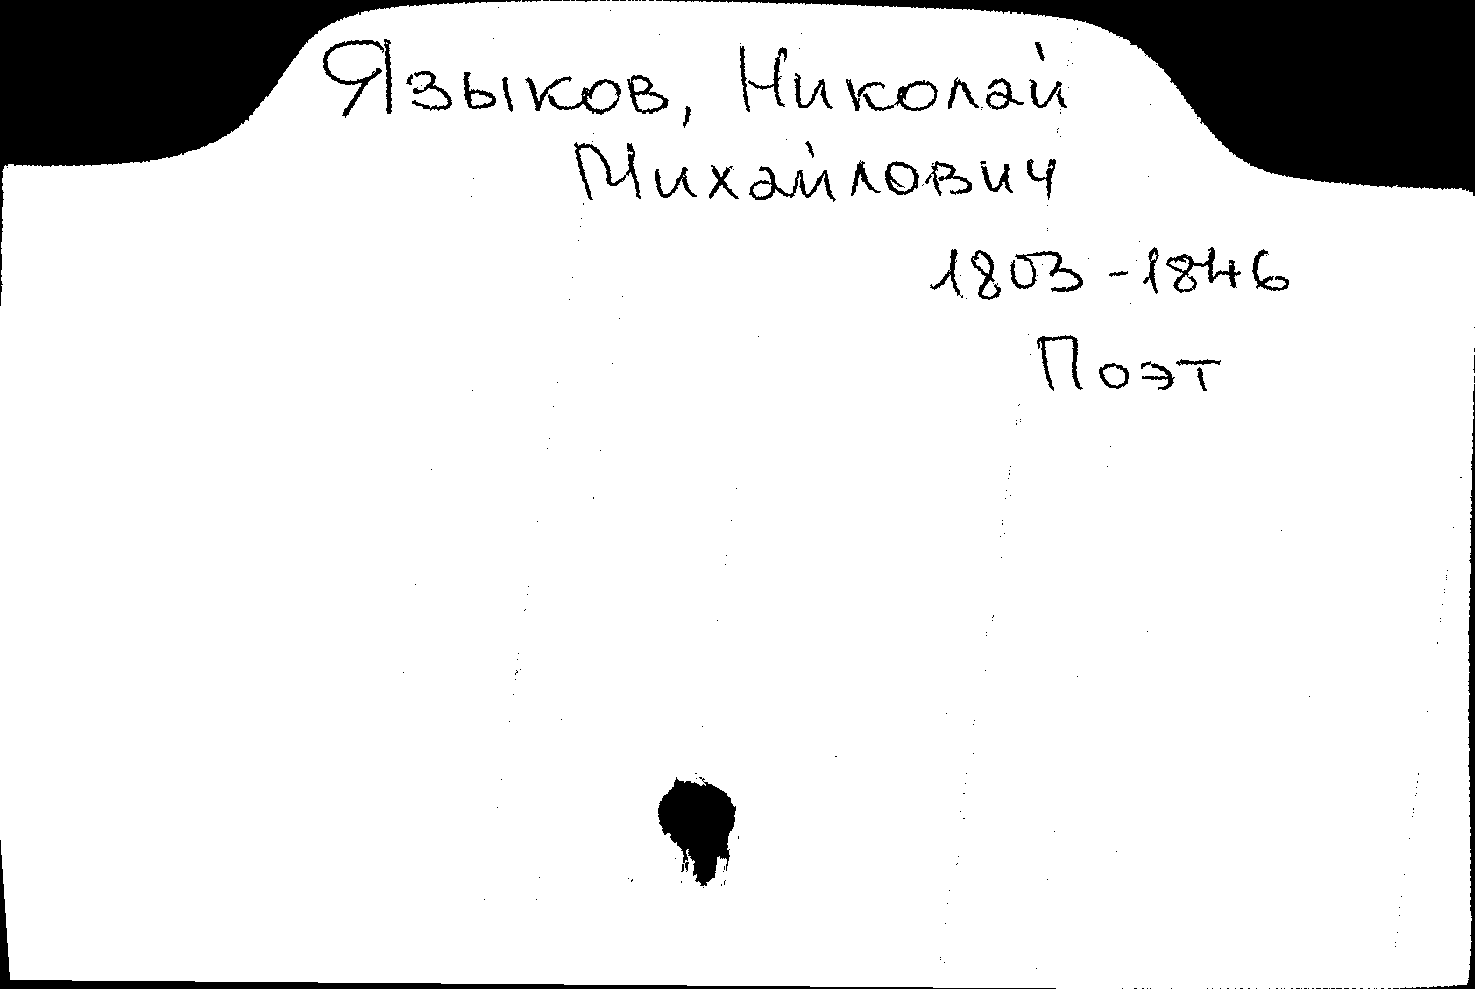 Языков, Николай
Михайлович
1803-1846
Поэт